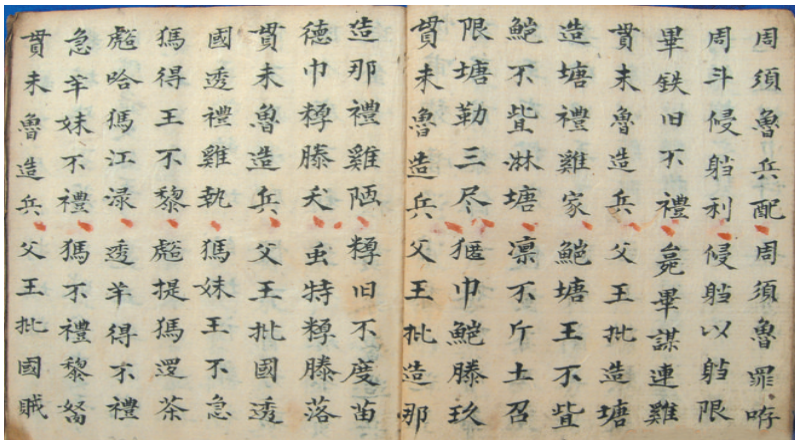 周須魯兵配 周須魯罪哼
周斗侵躺利 侵躺以躺限
畢鉄旧不禮 畢謀連雞
貫未魯造兵 父王批造塘
造塘禮雞家 鮑塘王不皆
鮑不皆淋塘 凛不斤土召
限塘勒三尽 巾鮑滕玖
貫未魯造兵 父王批造那
造那禮雞陋 旧不度苗
德巾滕犬 虫特滕落
貫未魯造兵 父王批國透
國透禮雞執 獁妹王不急
獁得王不黎 提獁逻茶
哈獁江渌 透羊得不禮
急羊妹不禮 獁不禮黎
貫未魯造兵 父王批國賊